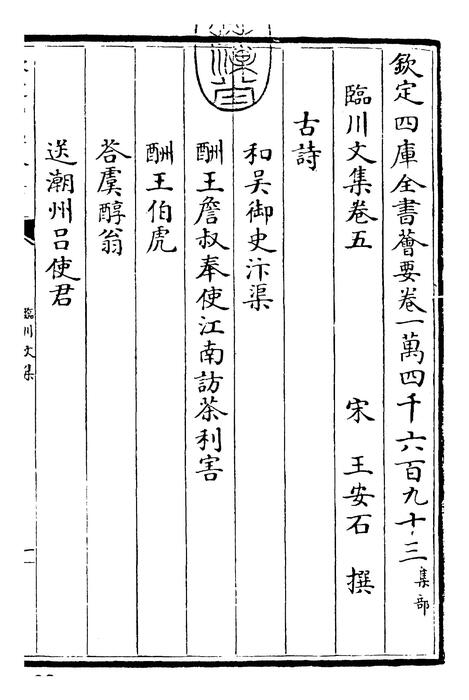 欽定四庫全書薈要卷一萬四千六百九十三集部
臨川文集卷五 宋 王安石 撰
古詩
和吳御史汴渠
酬王詹叔奉使江南訪茶利害
酬王伯虎
答虞醇翁
送潮州呂使君
臨川文集
一